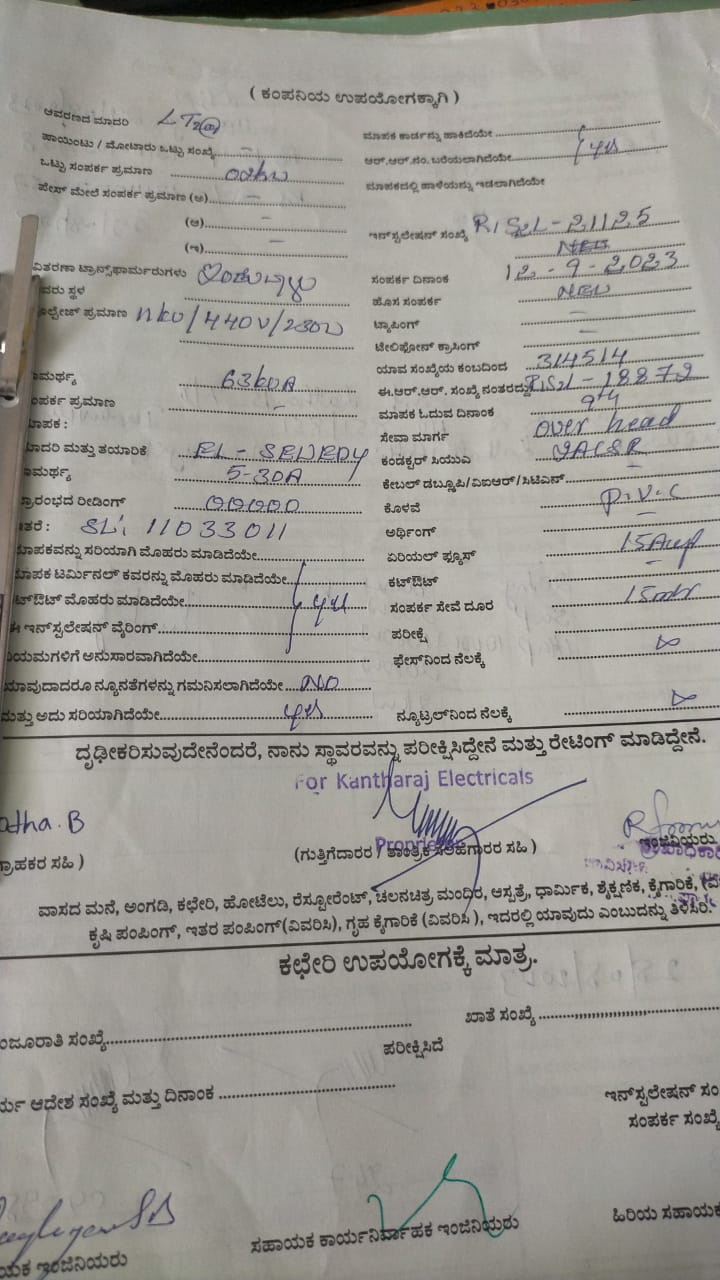 ( ಕಂಪನಿಯ ಉಪಯೋಗಕ್ಕಾಗಿ )
ಆವರಣದ ಮಾದರಿ LT2(a)
ಪಾಯಿಂಟು / ಮೋಟಾರು ಒಟ್ಟು ಸಂಖ್ಯೆ -
ಒಟ್ಟು ಸಂಪರ್ಕ ಪ್ರಮಾಣ
ಪೇಸ್ ಮೇಲೆ ಸಂಪರ್ಕ ಪ್ರಮಾಣ (ಅ) -
(ಆ) -
(ಇ) -
ವಿತರಣಾ ಟ್ರಾನ್ಸ್‌ಫಾರ್ಮರುಗಳು
ವರು ಸ್ಥಳ
ಪ್ರಮಾಣ 11kv/440V/230V
ಮರ್ಥ್ಯ 63kVA
ಂಪರ್ಕ ಪ್ರಮಾಣ -
ಮಾಪಕ :
ಮಾದರಿ ಮತ್ತು ತಯಾರಿಕೆ
ಮರ್ಥ್ಯ 5-30A
ಪ್ರಾರಂಭದ ರೀಡಿಂಗ್ 00000
ಇತರೆ : SL: 11033011
ಮಾಪಕವನ್ನು ಸರಿಯಾಗಿ ಮೊಹರು ಮಾಡಿದೆಯೇ
ಮಾಪಕ ಟರ್ಮಿನಲ್ ಕವರನ್ನು ಮೊಹರು ಮಾಡಿದೆಯೇ
ಕಟ್‌ಔಟ್ ಮೊಹರು ಮಾಡಿದೆಯೇ yes
ಈ ಇನ್‌ಸ್ಟಲೇಷನ್ ವೈರಿಂಗ್
ನಿಯಮಗಳಿಗೆ ಅನುಸಾರವಾಗಿದೆಯೇ
ಯಾವುದಾದರೂ ನ್ಯೂನತೆಗಳನ್ನು ಗಮನಿಸಲಾಗಿದೆಯೇ NO
ಮತ್ತು ಅದು ಸರಿಯಾಗಿದೆಯೇ yes
ಮಾಪಕ ಕಾರ್ಡನ್ನು ಹಾಕಿದೆಯೇ
ಆರ್.ಆರ್.ನಂ. ಬರೆಯಲಾಗಿದೆಯೇ yes
ಮಾಪಕದಲ್ಲಿ ಹಾಳೆಯನ್ನು ಇಡಲಾಗಿದೆಯೇ
ಇನ್‌ಸ್ಟಲೇಷನ್ ಸಂಖ್ಯೆ RISL-21125
ಸಂಪರ್ಕ ದಿನಾಂಕ 12-9-2023
ಹೊಸ ಸಂಪರ್ಕ NEW
ಟ್ಯಾಪಿಂಗ್ -
ಟೆಲಿಫೋನ್ ಕ್ರಾಸಿಂಗ್ -
ಯಾವ ಸಂಖ್ಯೆಯ ಕಂಬದಿಂದ 314514
ಈ.ಆರ್.ಆರ್. ಸಂಖ್ಯೆ ನಂತರದ್ದು RISL-18879
ಮಾಪಕ ಓದುವ ದಿನಾಂಕ 9th
ಸೇವಾ ಮಾರ್ಗ over head
ಕಂಡಕ್ಟರ್ ಸಿಯುಎ
ಕೇಬಲ್ ಡಬ್ಲ್ಯೂಪಿ/ವಿಐಆರ್/ಸಿಟಿಎಸ್ -
ಕೊಳವೆ P.V.C
ಅರ್ಥಿಂಗ್ -
ಏರಿಯಲ್ ಫ್ಯೂಸ್ 15Amp
ಕಟ್‌ಔಟ್ -
ಸಂಪರ್ಕ ಸೇವೆ ದೂರ 15mtr
ಪರೀಕ್ಷೆ
ಫೇಸ್‌ನಿಂದ ನೆಲಕ್ಕೆ ∞
ನ್ಯೂಟ್ರಲ್‌ನಿಂದ ನೆಲಕ್ಕೆ ∞
ದೃಢೀಕರಿಸುವುದೇನೆಂದರೆ, ನಾನು ಸ್ಥಾವರವನ್ನು ಪರೀಕ್ಷಿಸಿದ್ದೇನೆ ಮತ್ತು ರೇಟಿಂಗ್ ಮಾಡಿದ್ದೇನೆ.
For Kantharaj Electricals
atha.B
Proprietor
(ಗ್ರಾಹಕರ ಸಹಿ )
(ಗುತ್ತಿಗೆದಾರರ / ತಾಂತ್ರಿಕ ಸಲಹೆಗಾರರ ಸಹಿ )
ಇಂಜಿನಿಯರು
ವಾಸದ ಮನೆ, ಅಂಗಡಿ, ಕಛೇರಿ, ಹೋಟೆಲು, ರೆಸ್ಟೋರೆಂಟ್, ಚಲನಚಿತ್ರ ಮಂದಿರ, ಆಸ್ಪತ್ರೆ, ಧಾರ್ಮಿಕ, ಶೈಕ್ಷಣಿಕ, ಕೈಗಾರಿಕೆ,
ಕೃಷಿ ಪಂಪಿಂಗ್, ಇತರ ಪಂಪಿಂಗ್(ವಿವರಿಸಿ), ಗೃಹ ಕೈಗಾರಿಕೆ (ವಿವರಿಸಿ ), ಇದರಲ್ಲಿ ಯಾವುದು ಎಂಬುದನ್ನು ತಿಳಿಸಿರಿ.
ಕಛೇರಿ ಉಪಯೋಗಕ್ಕೆ ಮಾತ್ರ.
ಮಂಜೂರಾತಿ ಸಂಖ್ಯೆ
ಖಾತೆ ಸಂಖ್ಯೆ
ಪರೀಕ್ಷಿಸಿದೆ
ರ್ಯ ಆದೇಶ ಸಂಖ್ಯೆ ಮತ್ತು ದಿನಾಂಕ
ಇನ್‌ಸ್ಟಲೇಷನ್ ಸಂ
ಸಂಪರ್ಕ ಸಂಖ್ಯೆ
ಯಕ ಇಂಜಿನಿಯರು
ಸಹಾಯಕ ಕಾರ್ಯನಿರ್ವಾಹಕ ಇಂಜಿನಿಯರು
ಹಿರಿಯ ಸಹಾಯಕ